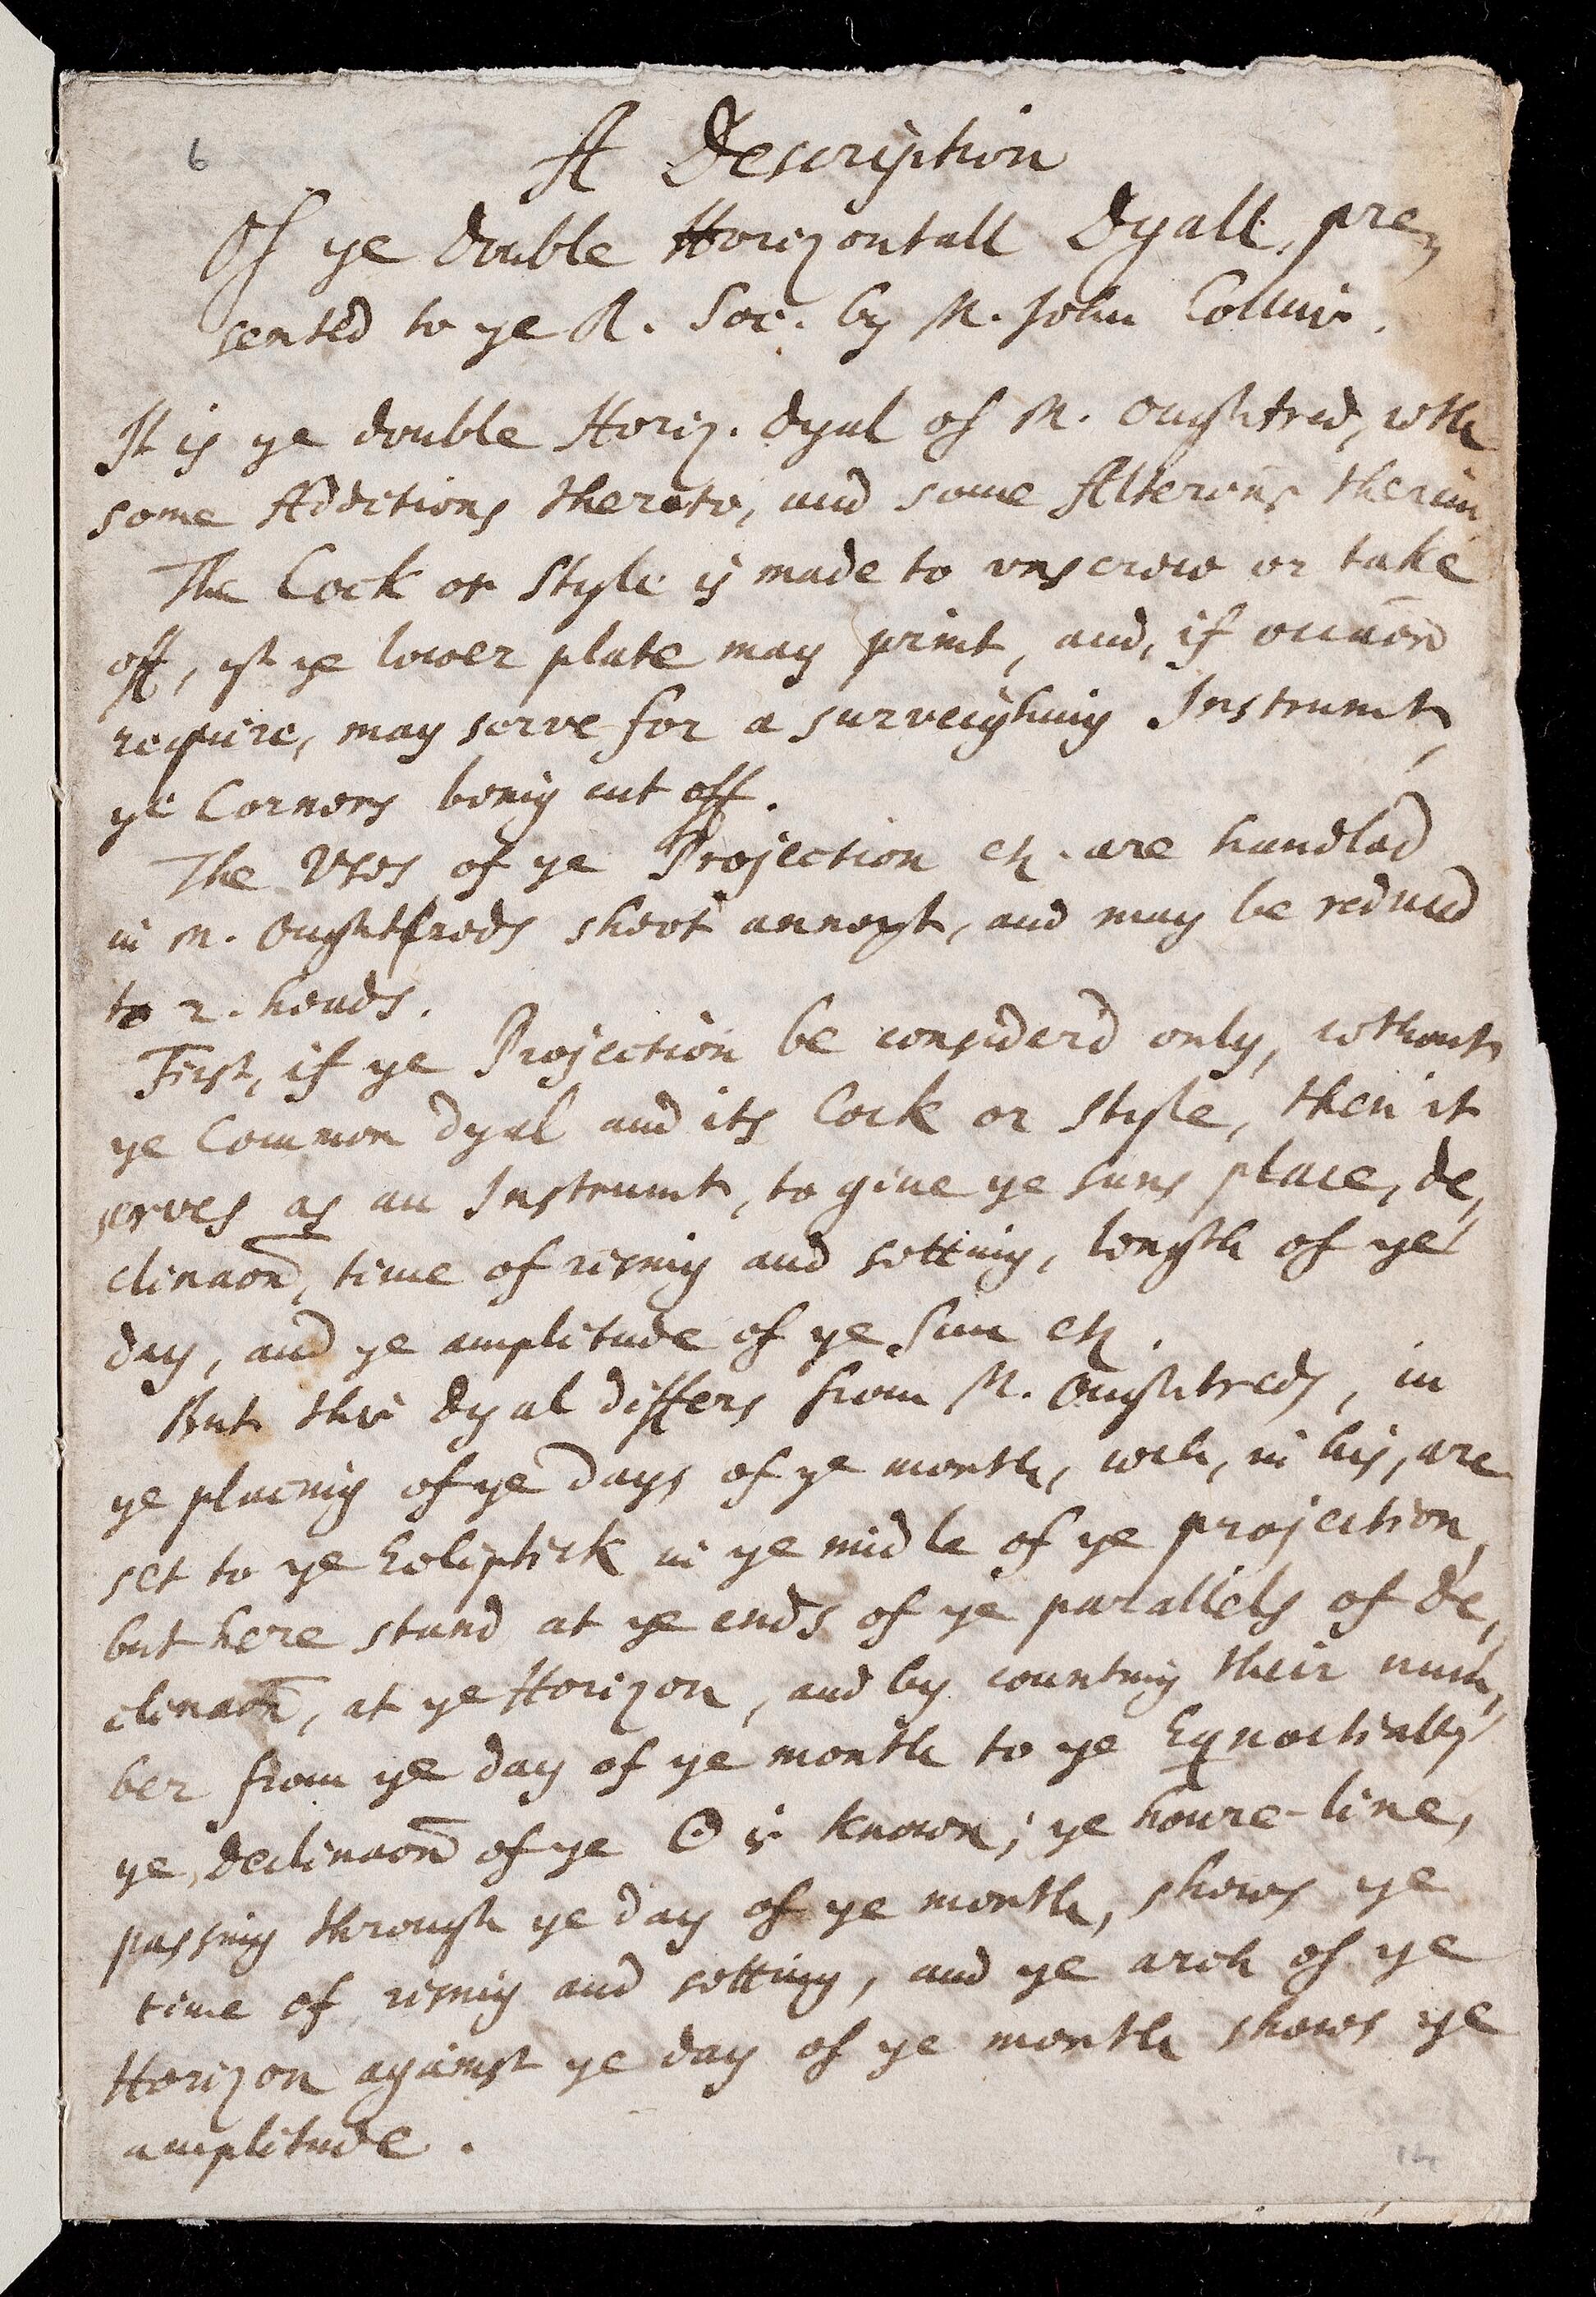 6
A Description
Of ye double Horizontall Dyall, pre,
sented to ye R. Soc. by M. John Collins.
It is ye double Horiz. Dyal of M. Oughtred, wth
some Additions thereto, and some Alterōns therein
The Cock or Style is made to unscrew or take
off, yt ye lower plate may print, and, if occaōn
require, may serve for a surveighing Instrumt,
ye Corners being cut off.
The Uses of ye Projection etc. are handled
in M. Oughtreds sheet annext, and may be reduced
to 2. heads.
First, if ye Projection be consider'd only, without
ye Common dyal and its Cock or Style, then it
serves as an Instrumt, to give ye suns place, de,
clinaōn, time of rising and setting, length of ye
day, and ye amplitude of ye Sun etc.
But this Dyal differs from M. Oughtreds, in
ye placing of ye days of ye month, wch, in his, are
set to ye Ecliptick in ye midle of ye projection,
but here stand at ye ends of ye parallels of de,
clinaōn, at ye Horizon, and by counting their num,
ber from ye day of ye month to ye Equoctiall,
ye declinaōn of ye ☉ is known; ye houre-line,
passing through ye day of ye month, shows ye
time of rising and setting, and ye arch of ye
Horizon against ye day of ye month shows ye
amplitude.